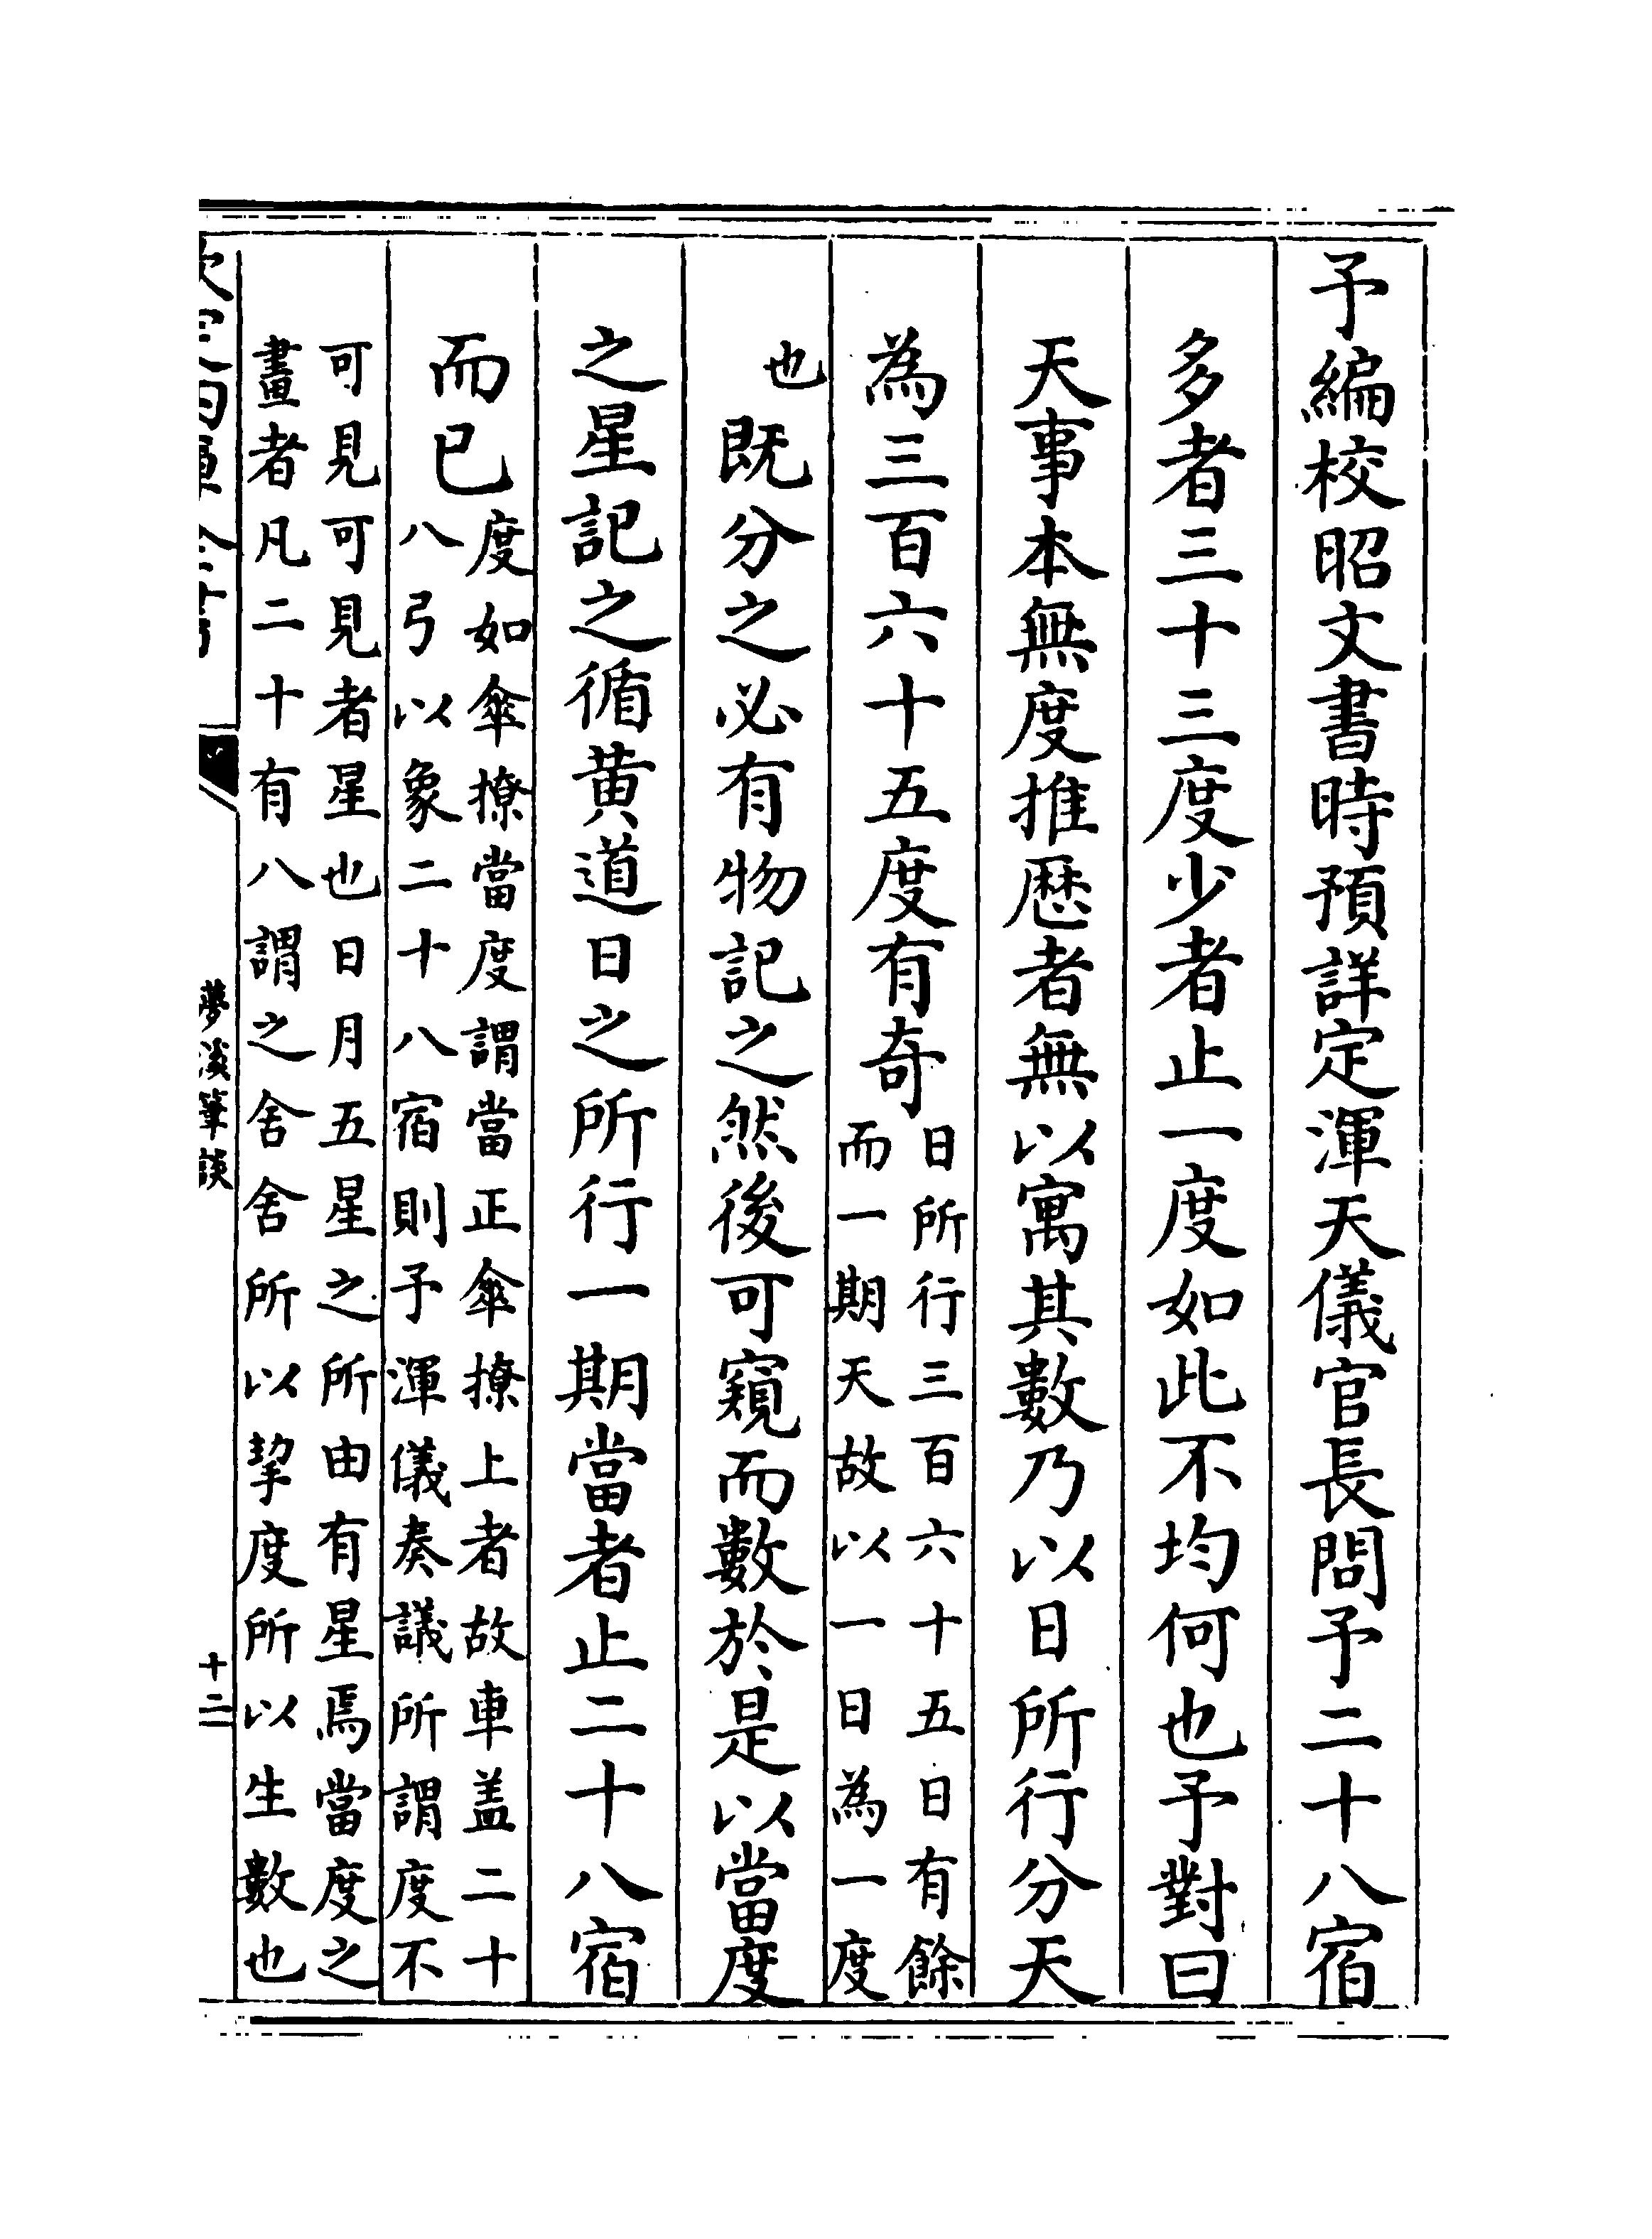 予編校昭文書時預詳定渾天儀官長問予二十八宿
多者三十三度少者止一度如此不均何也予對曰
天事本無度推歴者無以寓其數乃以日所行分天
為三百六十五度有奇日所行三百六十五日有餘
而一期天故以一日為一度
也既分之必有物記之然後可窺而數於是以當度
之星記之循黄道日之所行一期當者止二十八宿
而已度如傘橑當度謂當正傘橑上者故車盖二十
八弓以象二十八宿則予渾儀奏議所謂度不
可見可見者星也日月五星之所由有星焉當度之
畫者凡二十有八謂之舍舍所以挈度所以生數也
夢溪筆談
十二